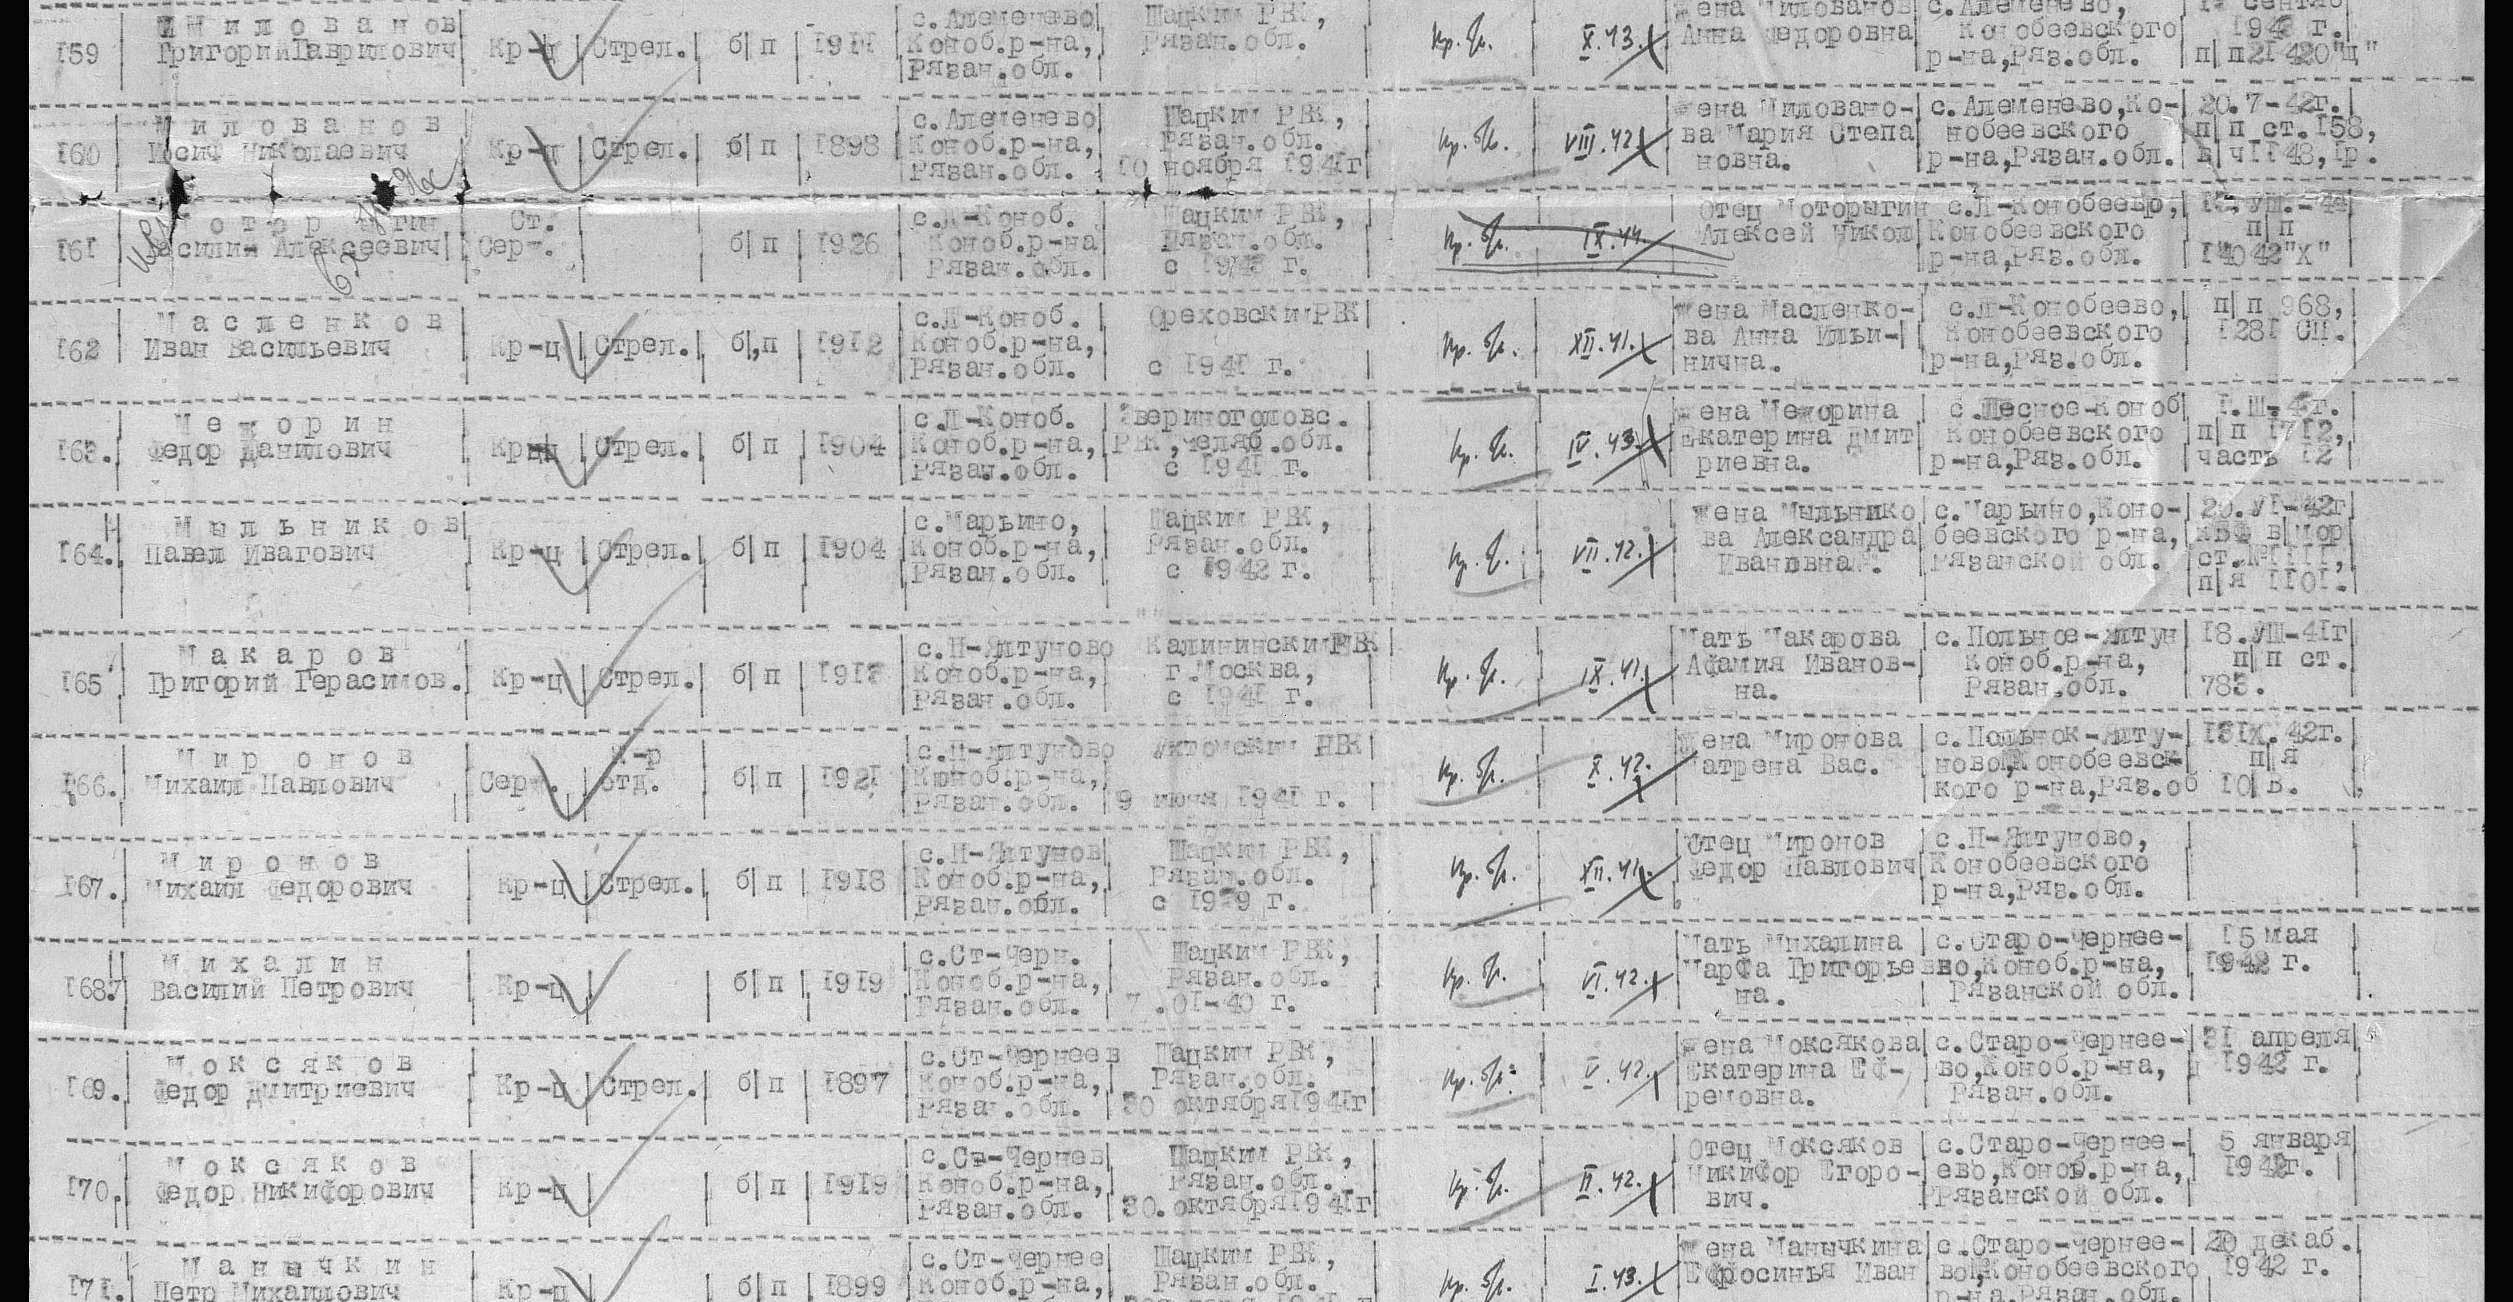 159 М и л о в а н о в Григорий Гаврилович Кр-ц Стрел. б/п 1911 с.Алеменево Коноб.р-на, Рязан.обл. Шацким РВК, Рязан.обл. X.43. Жена Милованов Анна Федоровна с.Алеменево, Конобеевского р-на,Ряз.обл. 194 г. п/п21420"Щ"
160 М и л о в а н о в Николаевич Кр-ц Стрел. б/п 1898 с.Алеменево Коноб.р-на, Рязан.обл. Шацким РВК, Рязан.обл. 10 ноября 1941г VIII.42. Жена Миловано- ва Мария Степа новна. с.Алеменево,Ко- нобеевского р-на,Рязан.обл. 20.7-42г. п/п ст.158, в/ч1148,1р.
161 Алексеевич Ст. Сер-. б/п 1926 с.Л-Коноб. Коноб.р-на Рязан.обл. Шацким РВК, Рязан.обл. IX.44. Отец Моторыгин Алексей Никол с.Л-Конобеево, Конобеевского р-на,Ряз.обл. п/п 14042"Х"
162 М а с л е н к о в Иван Васильевич Кр-ц Стрел. б/п 1912 с.Л-Коноб. Коноб.р-на, Рязан.обл. Ореховским РВК с 1941 г. XII.41. Жена Масленко- ва Анна Ильи- нична. с.Л-Конобеево, Конобеевского р-на,Ряз.обл. п/п 968, 1281 СП.
163. М е ж о р и н Федор Данилович Стрел. б/п 1904 с.Л-Коноб. Коноб.р-на, Рязан.обл. Звериноголовс. РВК,Челяб.обл. с 1941 г. IV.43. Жена Межорина Екатерина Дмит риевна. с.Лесное-Коноб Конобеевского р-на,Ряз.обл. п/п 1712, часть 12
164. М ы л ь н и к о в Павел Кр-ц Стрел. б/п 1904 с.Марьино, Коноб.р-на, Рязан.обл. Шацким РВК, Рязан.обл. с 1942 г. VII.42. Жена Мыльнико ва Александра Ивановна. с.Марьино,Коно- беевского р-на, Рязанской обл. 20.У1-42г ст.№1111, п/я 1101.
165 М а к а р о в Григорий Герасимов. Кр-ц Стрел. б/п с.П-Ялтуново Коноб.р-на, Рязан.обл. Калининским РВК г.Москва, с 1941 г. IX.41. Мать Макарова Афамия Иванов- на. с.Польное-Ялтун Коноб.р-на, Рязан.обл. 18.УШ-41г п/п ст. 783.
166. М и р о н о в Михаил Павлович Сер-. К-р отд. б/п 1921 с.П-Ялтуново Коноб.р-на, Рязан.обл. Ухтомским РВК 9 1941 г. X.42. Жена Миронова Матрена Вас. с.Польнок-Ялту- ново,Конобеевск- кого р-на,Ряз.об п/я 10/в.
167. М и р о н о в Михаил Федорович Кр-ц Стрел. б/п 1918 с.П-Ялтунов Коноб.р-на, Рязан.обл. Шацким РВК, Рязан.обл. с 1939 г. XII.41. Отец Миронов Федор Павлович с.П-Ялтуново, Конобеевского р-на,Ряз.обл.
168. М и х а л и н Василий Петрович Кр-ц б/п 1919 с.Ст-Черн. Коноб.р-на, Рязан.обл. Шацким РВК, Рязан.обл. 7 .01-40 г. VI.42. Мать Михалина Марфа Григорьев на. с.Старо-Чернее- во,Коноб.р-на, Рязанской обл. 15 мая 1942 г.
169. М о к с я к о в Федор Дмитриевич Кр-ц Стрел. б/п 1897 с.Ст-Чернеев Коноб.р-на, Рязан.обл. Шацким РВК, Рязан.обл. 30 октября1941г V.42. Жена Моксякова Екатерина Еф- ремовна. с.Старо-Чернее- во,Коноб.р-на, Рязан.обл. 31 апреля 1942 г.
170. М о к с я к о в Федор Никифорович Кр-ц б/п 1919 с.Ст-Чернев Коноб.р-на, Рязан.обл. Шацким РВК, Рязан.обл. 30.октября1941г II.42. Отец Моксяков Никифор Егоро- вич. с.Старо-Чернее- ево,Коноб.р-на, РРязанской обл. 5 января 1942г.
171. М а н ы ч к и н Петр Михайлович Кр-ц б/п 1899 с.Ст-Чернее Коноб.р-на, Шацким РВК, Рязан.обл. I.43. Жена Манычкина Ефросинья Иван с.Старо-Чернее- во,Конобеевского р-на,Рязан.обл. 20 декаб. 1942 г.